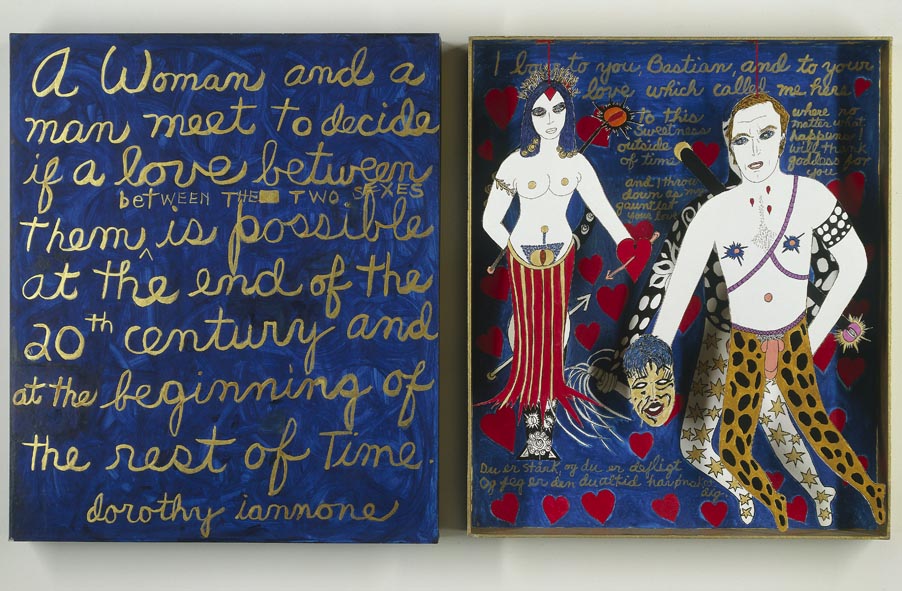 A Woman and a
man meet to decide
if a love between
betWEEN THE TWO SEXES
them is possible
at the end of the
20th century and
at the beginning of
the rest of Time.
dorothy iannone
I bow to you, Bastian, and to your
love which called me here
to this
sweetness
outside
of time
and I throw
down as my
gauntlet
your love
where no
matter what
happens I
will thank
goddess for
you
Du er stärk, og du er
Og jeg er den du altid har
dig.